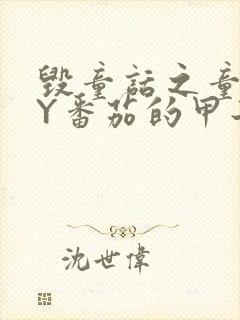 毁童话之童
Y番茄的甲
沈世偉